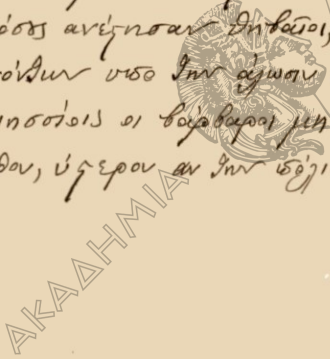 όσης ανέςησαν Θηβαίοι,
όλθων υπο την άλωσιν
ησσίοις οι βάρβαροι μη
θον, ύςερον αν την πόλι
ΑΚΑΔΗΜΙΑ